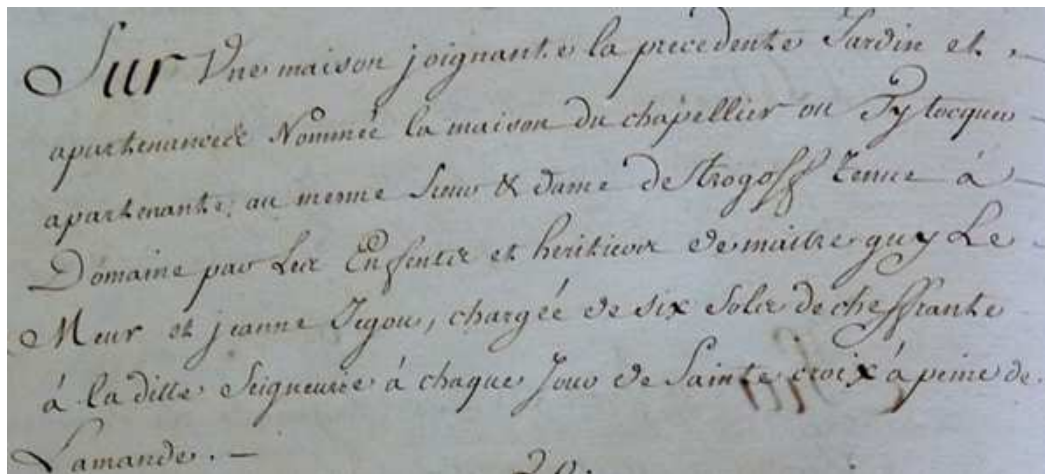 Sur Une maison joignante la precedente Jardin et
apartenances Nommée la maison du chapellier ou Ty tocquer
apartenante au meme Sieur & dame de Trogoff Tenue à
Domaine par Les Enffents et heritiers de maitre guy Le
Meur et jeanne Jegou, chargée de six Sols de cheffrante
à la ditte Seigneurie à chaque Jour de Sainte croix à peine de
Lamande. —
20.